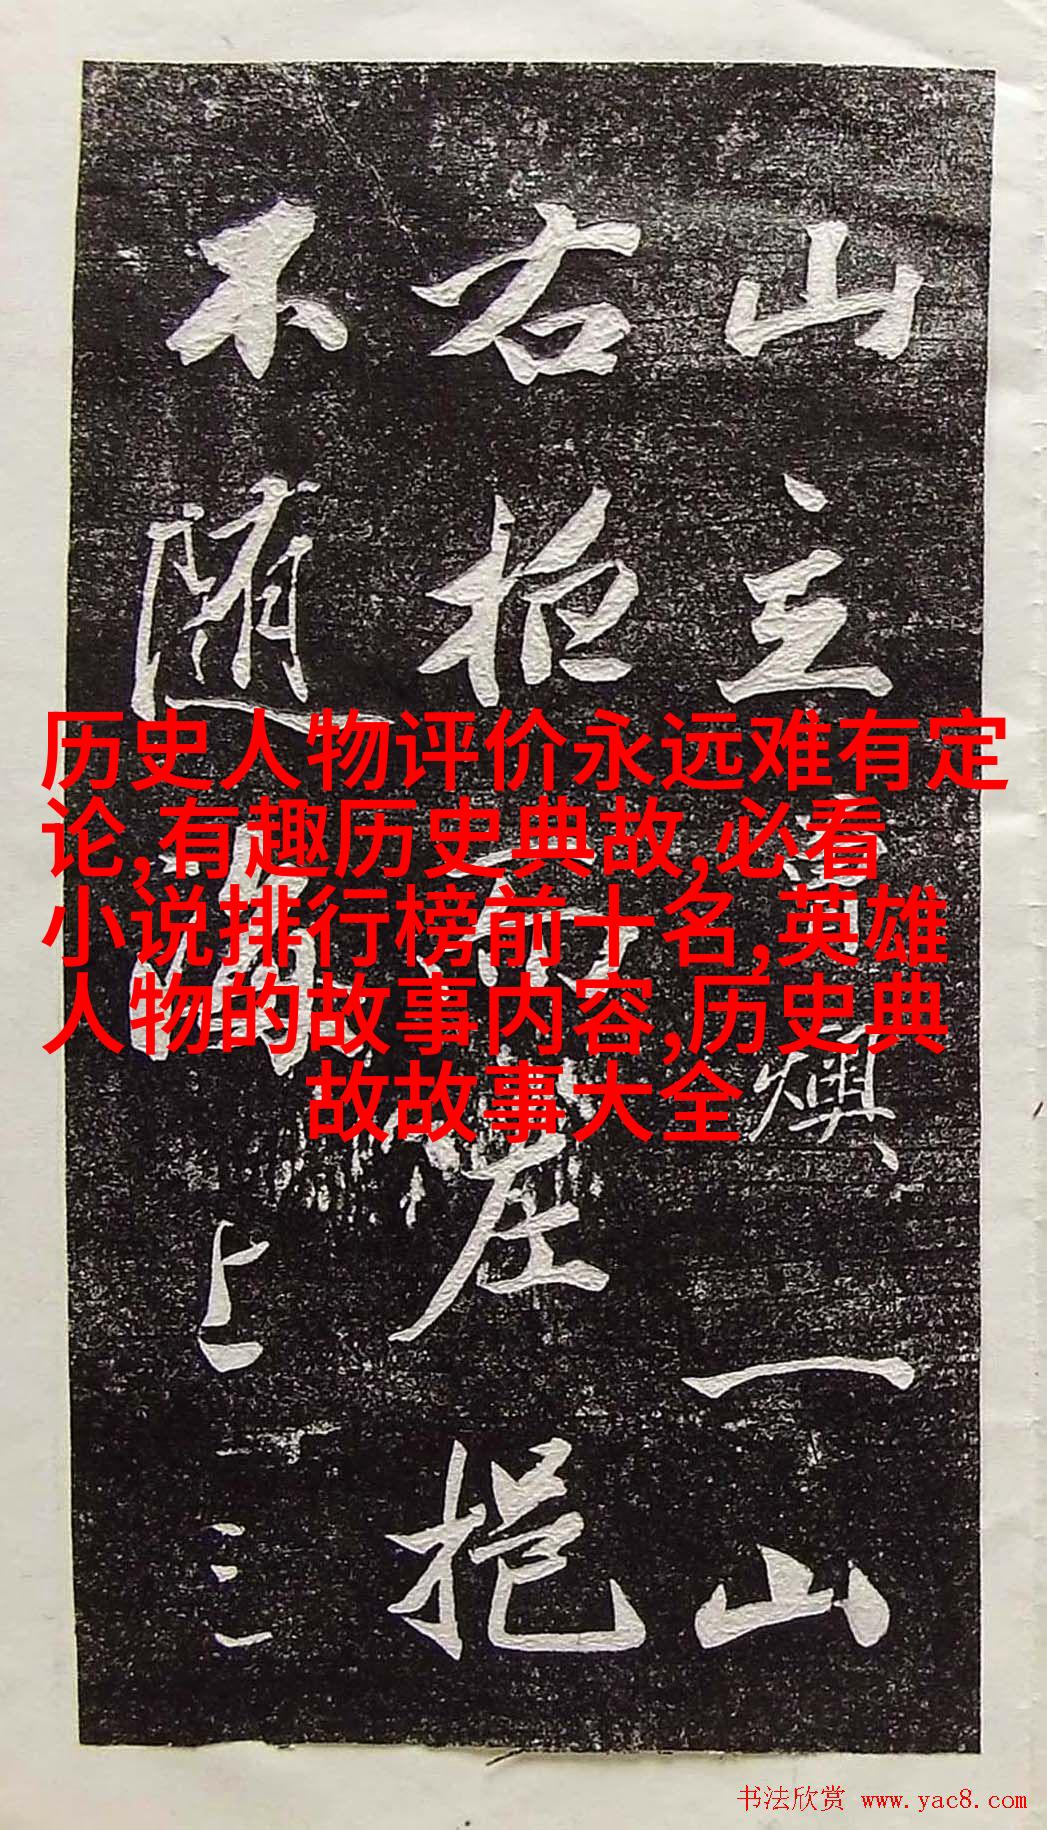 山主燠一山
右左挹
不随上三
历史人物评价永远难有定
论,有趣历史典故,必看
小说排行榜前十名,英雄
人物的故事内容,历史典
故故事大全
书法欣赏 www.yac8.com